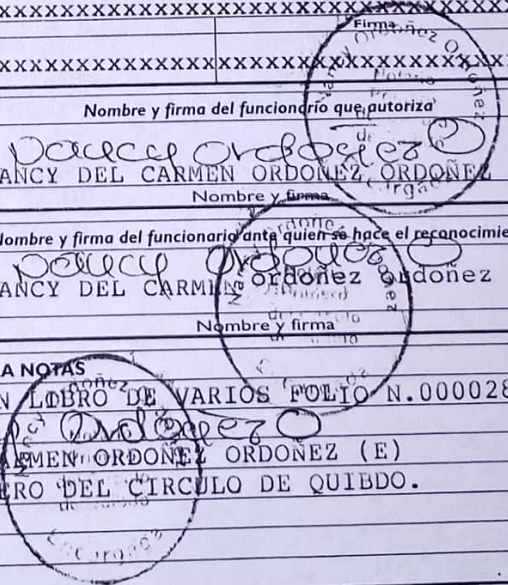 XXXXXXXXXXXXXXXXXXXXXXXXXXXXXXXXXX
Firma
XXXXXXXXXXXXXXXXXXXXXXXXXXXXXXXXXX
Nancy Ordoñez Ordoñez
Nombre y firma del funcionario que autoriza
Nancy Ordoñez O
ANCY DEL CARMEN ORDOÑEZ ORDOÑEZ
Nombre y firma
Nombre y firma del funcionario ante quien se hace el reconocimie
Nancy Ordoñez O
ANCY DEL CARMEN ordoñez ordoñez
Nombre y firma
A NOTAS
N LIBRO DE VARIOS FOLIO N.000028
Ordoñez O
RMEN ORDOÑEZ ORDOÑEZ (E)
ERO DEL CIRCULO DE QUIBDO.
Encargada